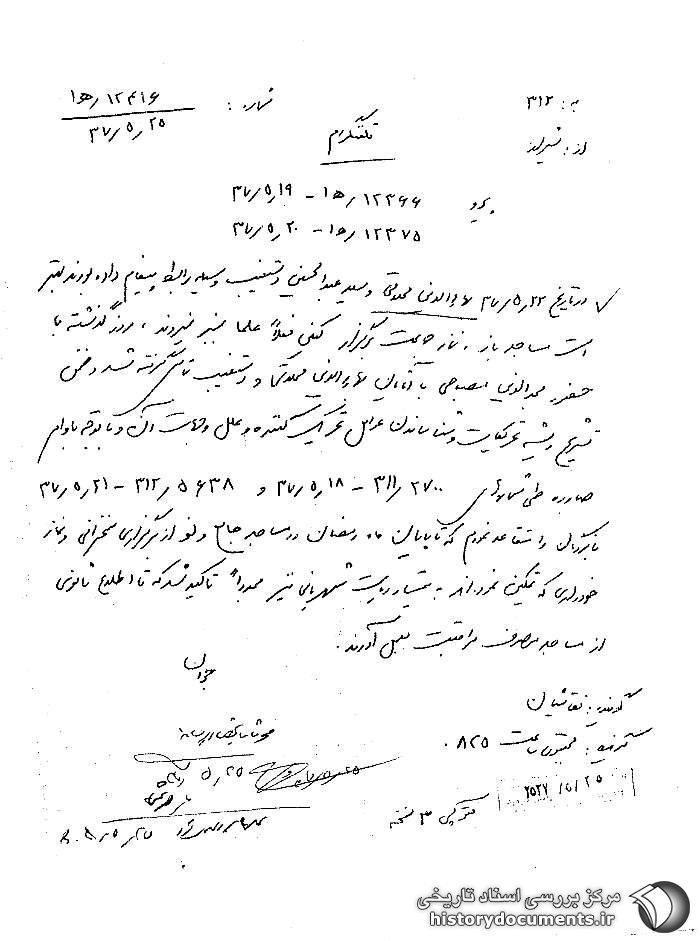 به: ۳۱۲
از: شیراز
شماره: ۱۲۴۱۶/ه‍۱
۳۷/۵/۲۵
تلگرام
پیرو ۱۲۳۶۶/ه‍۱ – ۳۷/۵/۱۹
۱۲۳۷۵/ه‍۱ – ۳۷/۵/۲۰
در تاریخ ۳۷/۵/۲۲ بهاءالدین محلاتی و سید عبدالحسین دستغیب وسیله رابط پیغام داده بودند بهتر
است مساجد باز و نماز جماعت برگزار لکن فعلاً علما منبر نمیروند، روز گذشته با
حضور مجدالدین مصباحی با آقایان بهاءالدین محلاتی و دستغیب تماس گرفته شد و ضمن
تشریح ریشه تحریکات و شناساندن عوامل تحریک کننده و علل و جهات آن و با توجه باوامر
صادره طی شماره‌های ۳۱۱/۲۷۰۰ – ۳۷/۵/۱۸ و ۳۱۲/۵۶۳۸ – ۳۷/۵/۲۱
نامبردگان را متقاعد نمودم که تا پایان ماه رمضان در مساجد جامع و نو از برگزاری سخنرانی و نماز
خودداری که تمکین نموده‌اند به تیمسار ریاست شهربانی نیز مجدداً تاکید شد که تا اطلاع ثانوی
از مساجد معروف مراقبت بعمل آورند.
جوان
گوینده: نقاشیان
گیرنده: ساعت ۰۸۲۵
۲۵۳۷/۵/۲۵
فتوکپی ۳ نسخه
۵/۲۵
مرکز بررسی اسناد تاریخی
historydocuments.ir